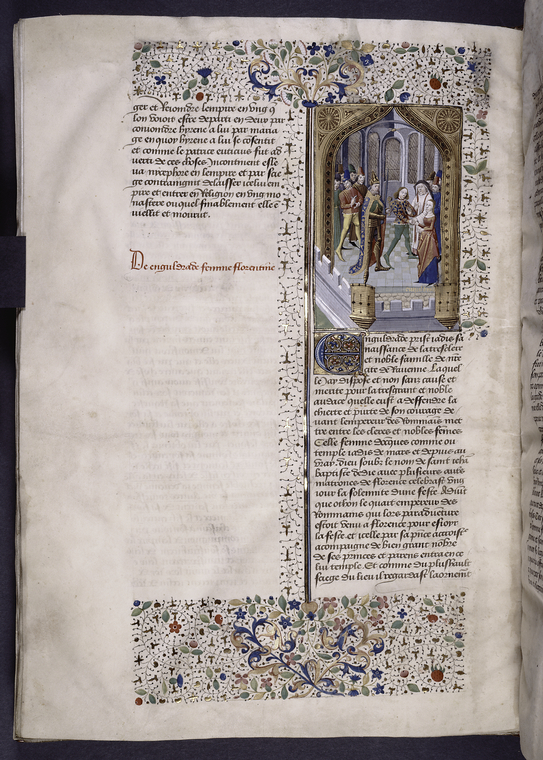 ger et reioindre lempire en ung q
lon vouoit estre departi en deux par
conioindre hyrene a lui par maria
ge en quoy hyrene a lui se cosentit
et comme le patrice euticius fut ad
verti de ces choses Incontinent esle
va nycephore en lempire et par sie
ge contraignit delaisser icelui em
pire et entrer en religion en ung mo
nastere ouquel finablement elle e
viellit et mourut.
De enguldrade femme florentine
Enguldrade prist iadis sa
naissance de la tresclere
et noble famille de
cite de Ravenne Laquel
le Jay dispose et non sans cause et
merite pour la tresgrant et noble
audace quelle eust a deffendre la
chierte et purte de son courage de
vant lempereur des Rommains met
tre entre les cleres et nobles femes
Celle femme decques comme ou
temple iadis de mars et depuis au
vray dieu soubz le nom de saint iehan
baptiste dedie avec plusieurs autres
matrones de florence celebrast ung
iour la solemnite dune feste Advint
que othon le quart empereur des
Rommains qui lors par adventure
estoit venu a florence pour esioyr
la feste et icelle par sa presence accroistre
acompaigne de bien grant nobre
de ses princes et parens entra en ce
lui temple. Et comme du plus hault
siege du lieu il regardast laornemet